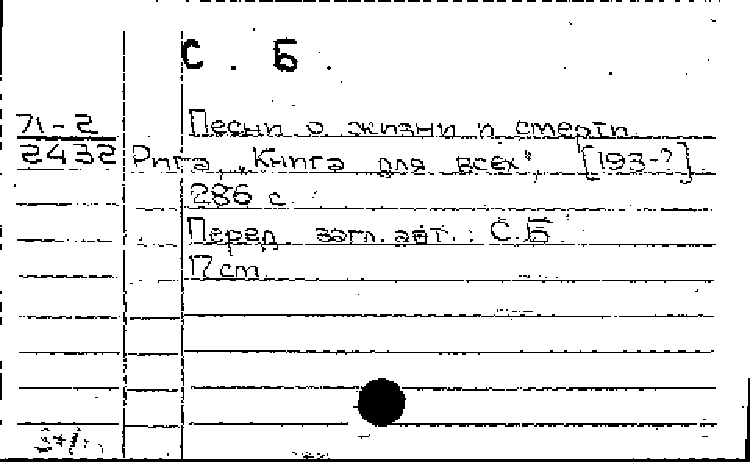 С. Б.
71-2
2432
Песни о жизни и смерти.
Рига, „Книга для всех", [193-?].
286 с.
Перед загл. авт.: С.Б.
17 cm.